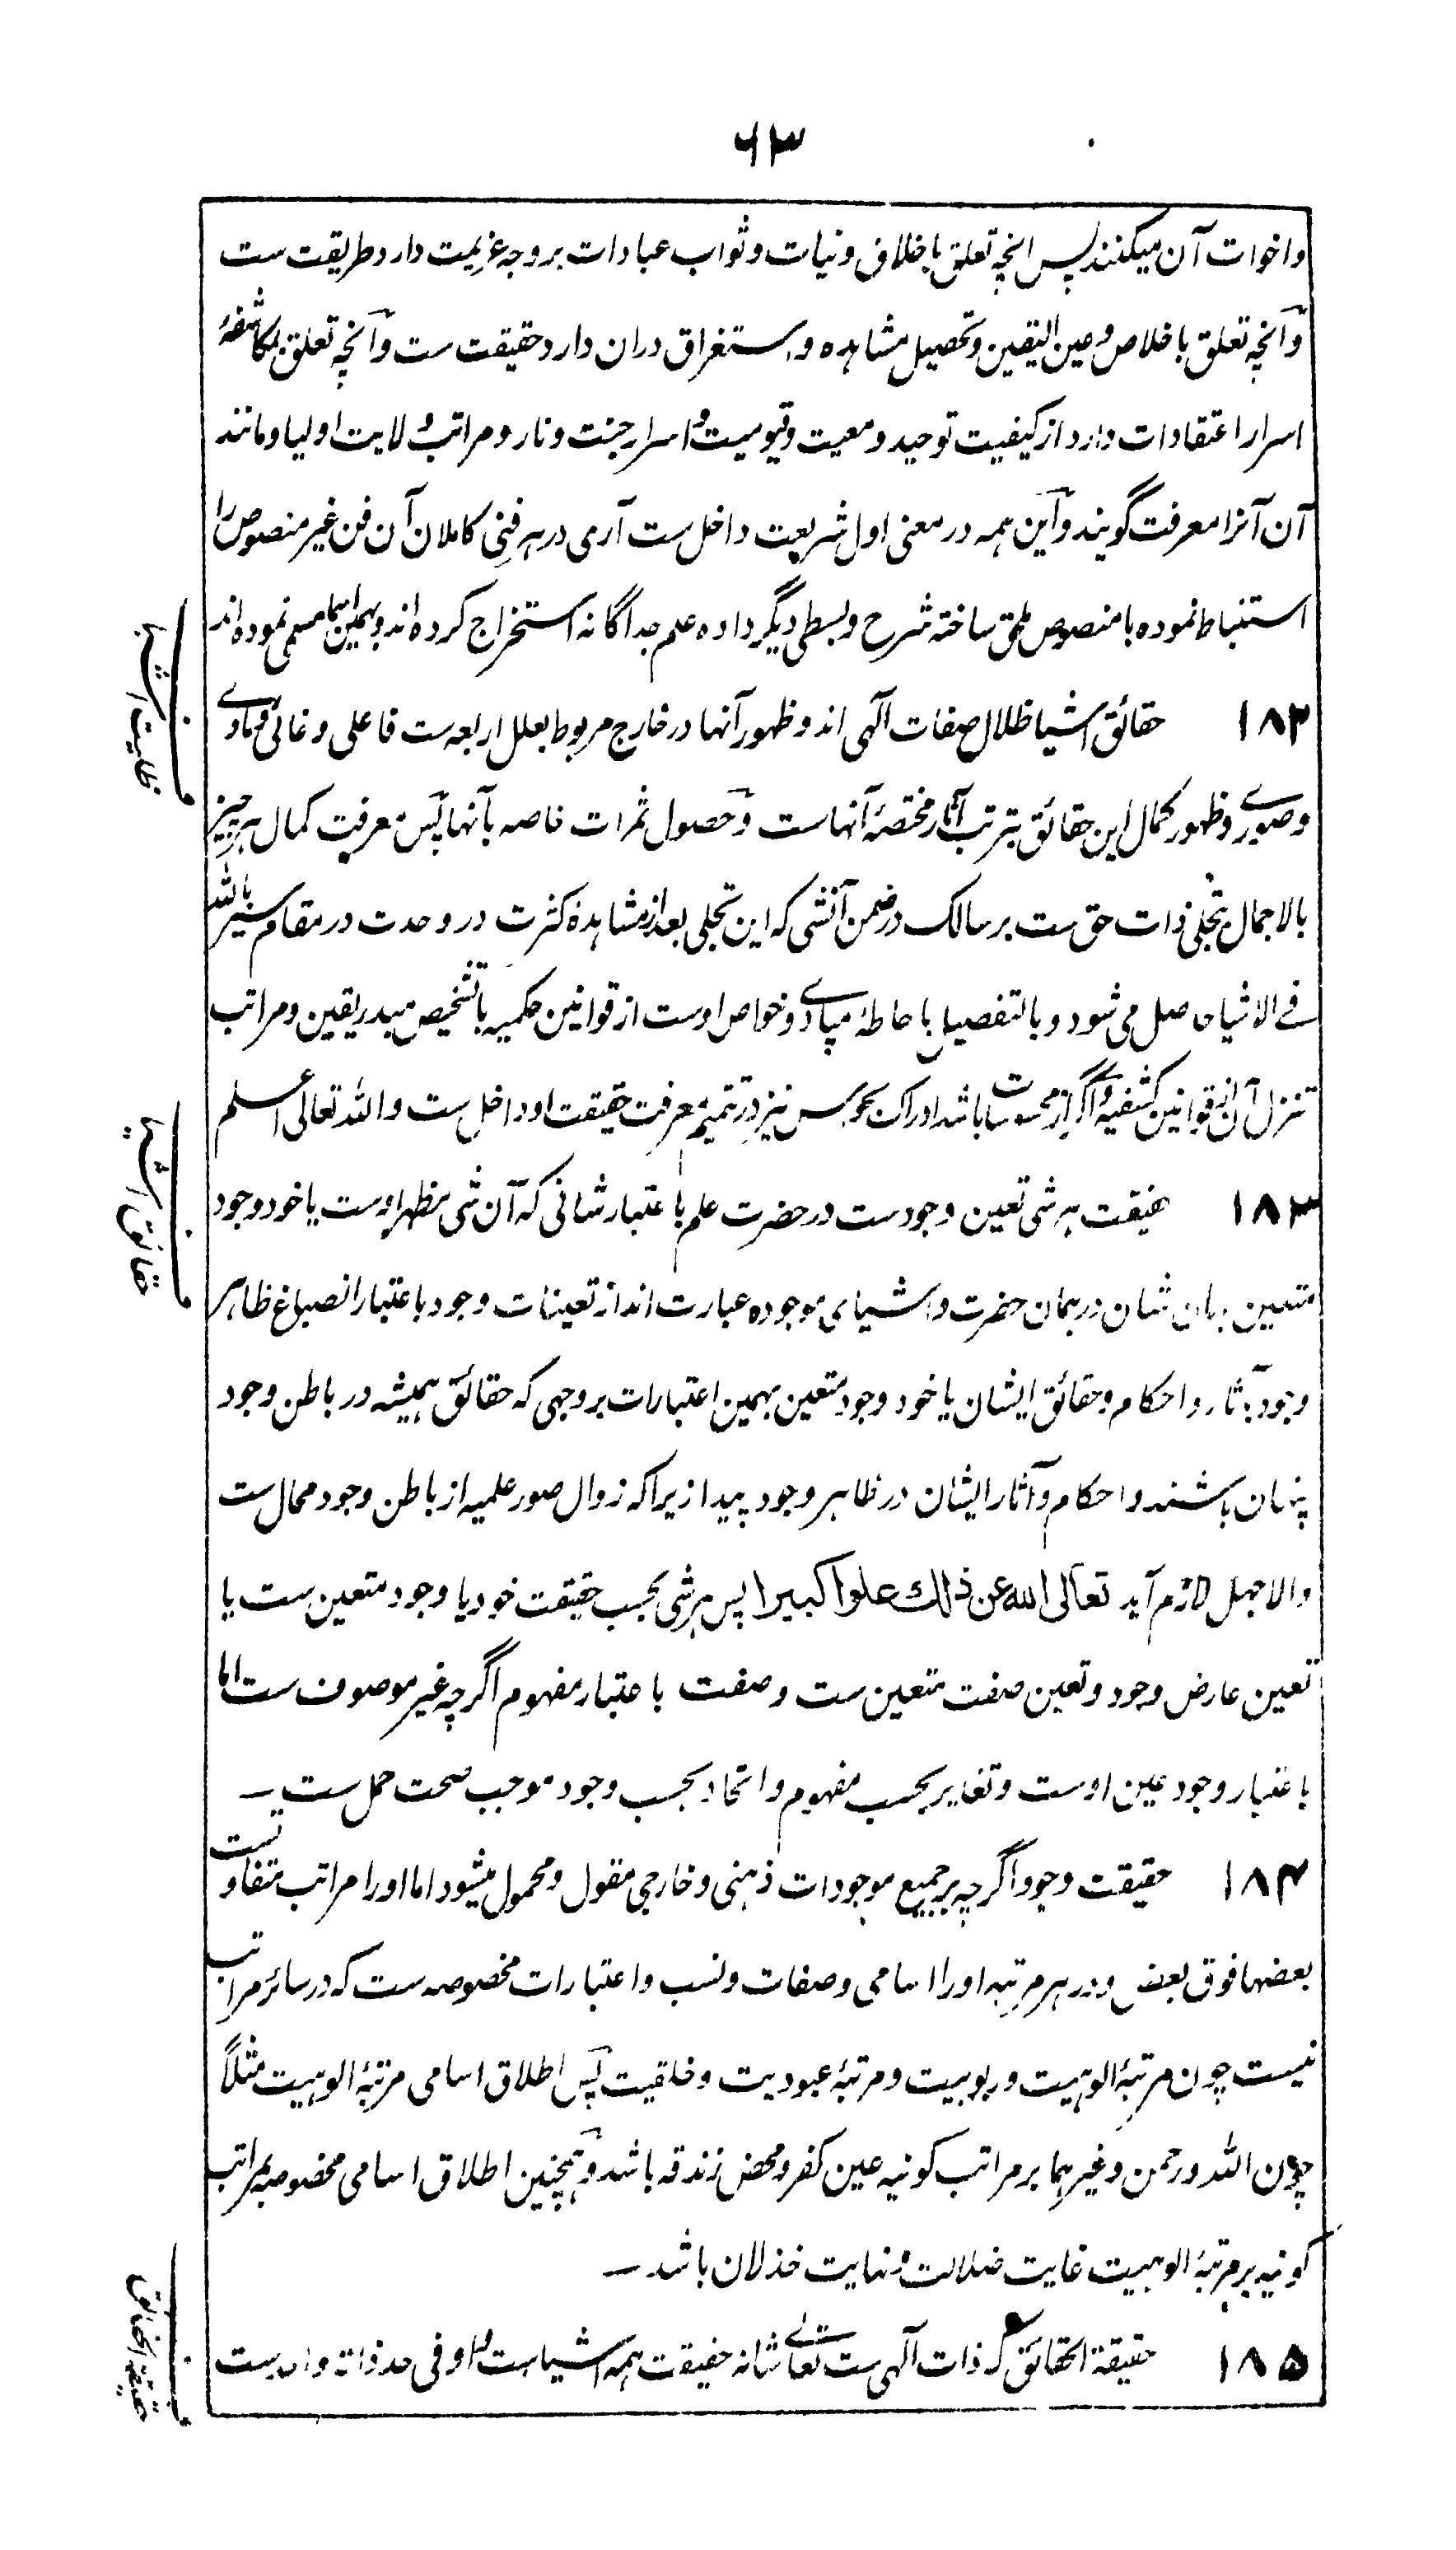 ٦٣
واخوات آن میکنند پس انچه تعلق باخلاق ونیات وثواب عبادات بروجه عزیمت دارد طریقت ست
وآنچه تعلق باخلاص وعین الیقین وتحصیل مشاهده واستغراق دران دارد حقیقت ست وآنچه تعلق بمکاشفهٔ
اسرار اعتقادات دارد از کیفیت توحید ومعیت وقیومیت واسرار جنت ونار ومراتب ولایت اولیا ومانند
آن آنرا معرفت گویند وآین همه در معنی اول شریعت داخل ست آری در هر فنی کاملان آن فن غیر منصوص را
استنباط نموده با منصوص ملحق ساخته شرح وبسطی دیگر داده علم جداگانه استخراج کرده اند وبهمین اسما مسمی نموده اند
ف ظلیت اشیا
١٨٢ حقائق اشیا ظلال صفات آلهی اند وظهور آنها در خارج مربوط بعلل اربعه ست فاعلی وغائی ومادی
وصوری وظهور کمال این حقائق بترتب آثار مختصهٔ آنهاست وحصول ثمرات خاصه بآنها پس معرفت کمال هر چیز
بالاجمال بتجلی ذات حق ست بر سالک در ضمن آنشی که این تجلی بعد از مشاهدهٔ کثرت در وحدت در مقام سیر بالله
فی الاشیا حاصل می شود وبالتفصیل باحاطهٔ مبادی وخواص اوست از قوانین حکمیه با تشخیص مبدء یقین ومراتب
تنزل آن از قوانین کشفیه واگر از محسوسات باشد ادراک بحواس نیز در تتمیم معرفت حقیقت او داخل ست والله تعالی اعلم
ف حقائق اشیا
١٨٣ حقیقت هر شی تعین وجودست در حضرت علم باعتبار شانی که آن شی مظهر اوست یا خود وجود
متعین بهان شان در همان حضرت واشیای موجوده عبارت اند از تعینات وجود باعتبار انصباغ ظاهر
وجود بآثار واحکام وحقائق ایشان یا خود وجود متعین بهمین اعتبارات بروجهی که حقائق همیشه در باطن وجود
پنهان باشند واحکام وآثار ایشان در ظاهر وجود پیدا زیراکه زوال صور علمیه از باطن وجود محال ست
والا جهل لازم آید تعالی الله عن ذالك علوا كبيرا پس هر شی بحسب حقیقت خود یا وجود متعین ست یا
تعین عارض وجود وتعین صفت متعین ست وصفت باعتبار مفهوم اگرچه غیر موصوف ست اما
باعتبار وجود عین اوست وتغایر بحسب مفهوم واتحاد بحسب وجود موجب صحت حمل ست ـ
١٨٤ حقیقت وجود اگرچه بر جمیع موجودات ذهنی وخارجی مقول ومحمول میشود اما اورا مراتب متفاوت ست
بعضها فوق بعض ودر هر مرتبه اورا اسامی وصفات ونسب واعتبارات مخصوصه ست که در سائر مراتب
نیست چون مرتبهٔ الوهیت وربوبیت ومرتبهٔ عبودیت وخلقیت پس اطلاق اسامی مرتبهٔ الوهیت مثلاً
چون الله ورحمن وغیرهما بر مراتب کونیه عین کفر ومحض زندقه باشد وهمچنین اطلاق اسامی مخصوصه بمراتب
کونیه بر مرتبهٔ الوهیت غایت ضلالت ونهایت خذلان باشد ـ
ف حقیقة الحقائق
١٨٥ حقیقة الحقائق که ذات آلهی ست تعالی شانه حقیقت همه اشیاست واو فی حد ذاته واحدست